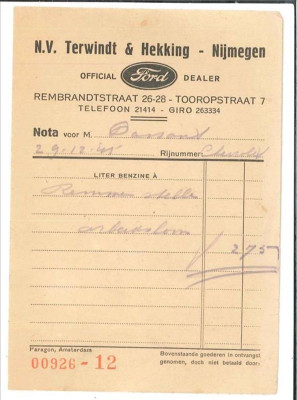 N.V. Terwindt & Hekking - Nijmegen
OFFICIAL Ford DEALER
REMBRANDTSTRAAT 26-28 - TOOROPSTRAAT 7
TELEFOON 21414 - GIRO 263334
Nota voor M.
29-12-45 Rijnummer Chevrolet
LITER BENZINE À
Remmen stellen
arbeidsloon
2 75
Paragon, Amsterdam
Bovenstaande goederen in ontvangst
genomen, doch niet betaald door:
00926 - 12